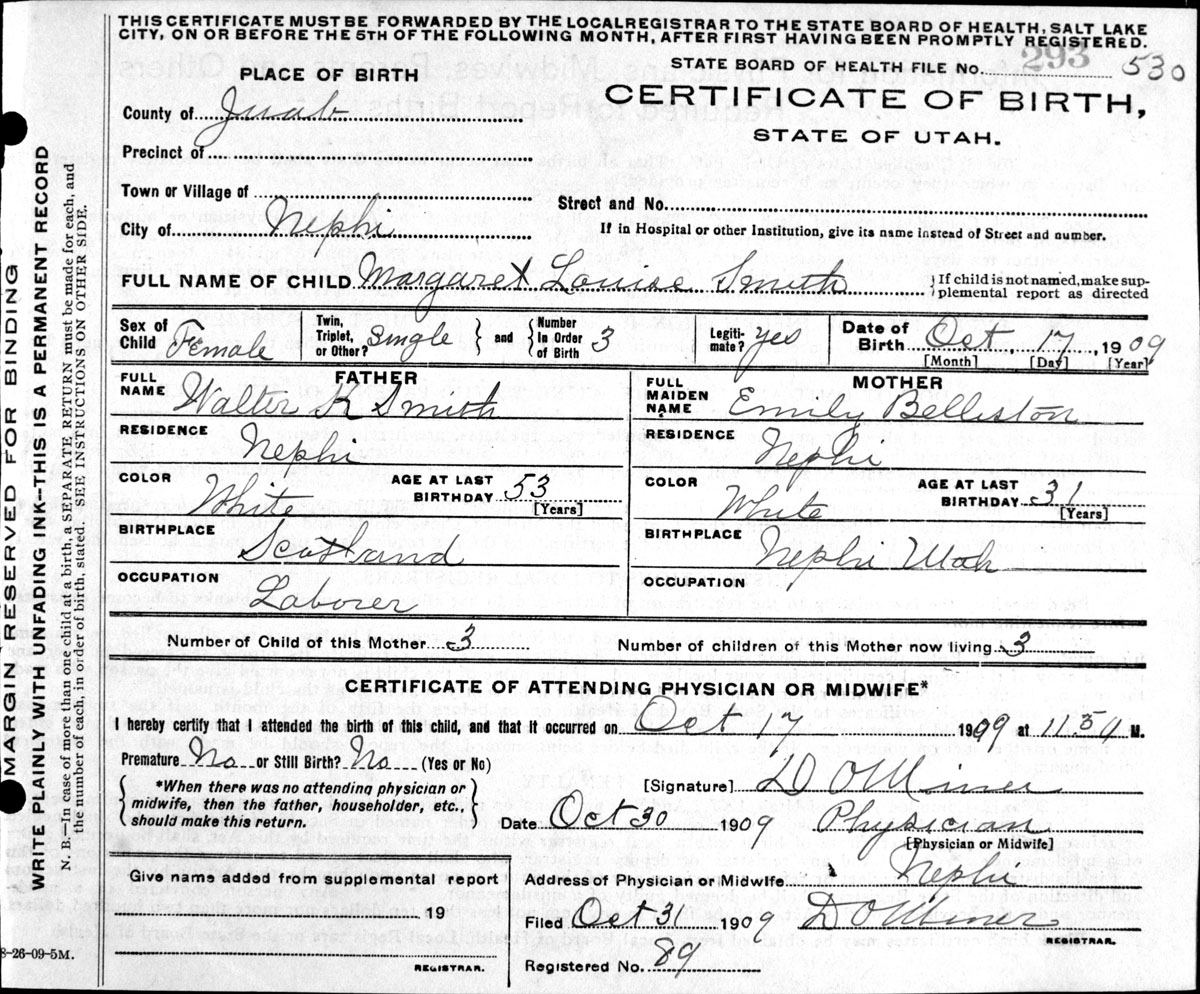 THIS CERTIFICATE MUST BE FORWARDED BY THE LOCAL REGISTRAR TO THE STATE BOARD OF HEALTH, SALT LAKE
CITY, ON OR BEFORE THE 5TH OF THE FOLLOWING MONTH, AFTER FIRST HAVING BEEN PROMPTLY REGISTERED.
STATE BOARD OF HEALTH FILE No. 293 530
PLACE OF BIRTH
CERTIFICATE OF BIRTH,
STATE OF UTAH.
County of Juab
Precinct of
Town or Village of
Street and No.
City of Nephi
If in Hospital or other Institution, give its name instead of Street and number.
FULL NAME OF CHILD Margaret Louise Smith { If child is not named, make sup-
plemental report as directed
Sex of Child Female Twin, Triplet, or Other? Single } and { Number In Order of Birth 3 Legiti- mate? yes Date of Birth Oct, 17, 1909
[Month] [Day] [Year]
FATHER MOTHER
FULL NAME Walter K Smith FULL MAIDEN NAME Emily Belliston
RESIDENCE Nephi RESIDENCE Nephi
COLOR White AGE AT LAST BIRTHDAY 53 [Years] COLOR White AGE AT LAST BIRTHDAY 31 [Years]
BIRTHPLACE Scotland BIRTHPLACE Nephi Utah
OCCUPATION Laborer OCCUPATION
Number of Child of this Mother 3 Number of children of this Mother now living 3
CERTIFICATE OF ATTENDING PHYSICIAN OR MIDWIFE*
I hereby certify that I attended the birth of this child, and that it occurred on Oct 17 1909 at M.
Premature No or Still Birth? No (Yes or No)
[Signature] D O Miner
{ *When there was no attending physician or
midwife, then the father, householder, etc.,
should make this return. }
Date Oct 30 1909 Physician
[Physician or Midwife]
Give name added from supplemental report
19
REGISTRAR.
Address of Physician or Midwife Nephi
Filed Oct 31 1909 D O Miner
REGISTRAR.
Registered No. 89
MARGIN RESERVED FOR BINDING
WRITE PLAINLY WITH UNFADING INK--THIS IS A PERMANENT RECORD
N. B.—In case of more than one child at a birth, a SEPARATE RETURN must be made for each, and
the number of each, in order of birth, stated. SEE INSTRUCTIONS ON OTHER SIDE.
8-26-09-5M.